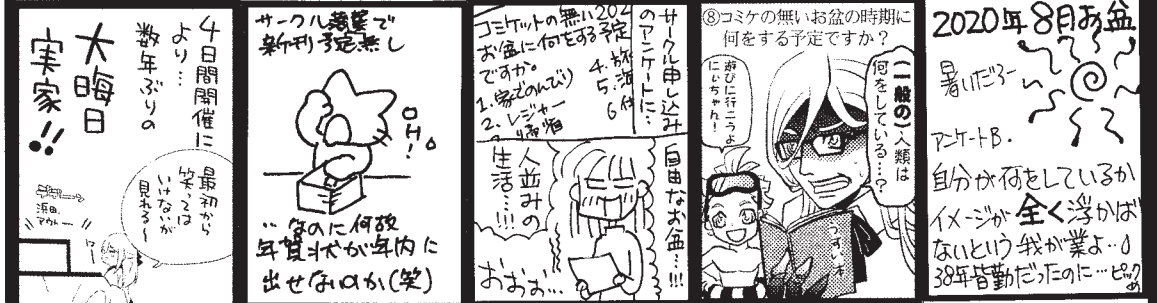 4日間開催に
より…
数年ぶりの
大晦日
実家!!
最初から
笑っては
いけないが
見れる〜
デデーン
浜田、
アウトー
サークル落選で
新刊予定無し
OH!
…なのに何故
年賀状が年内に
出せないのか(笑)
サークル申し込み
のアンケートに…
コミケットの無い202
お盆に何をする予定
ですか。
1.家でのんびり
2.レジャー
4.旅
5.酒
6.仕
自由なお盆…!!!
人並みの
生活…!!!
おおぉ…
⑧コミケの無いお盆の時期に
何をする予定ですか？
(一般の)人類は
何をしている…？
遊びに行こうよ
にぃちゃん!
うすい本
2020年8月お盆
暑いだろー
アンケートB.
自分が何をしているか
イメージが全く浮かば
ないという我が業よ…
38年皆勤だったのに…ピックめ